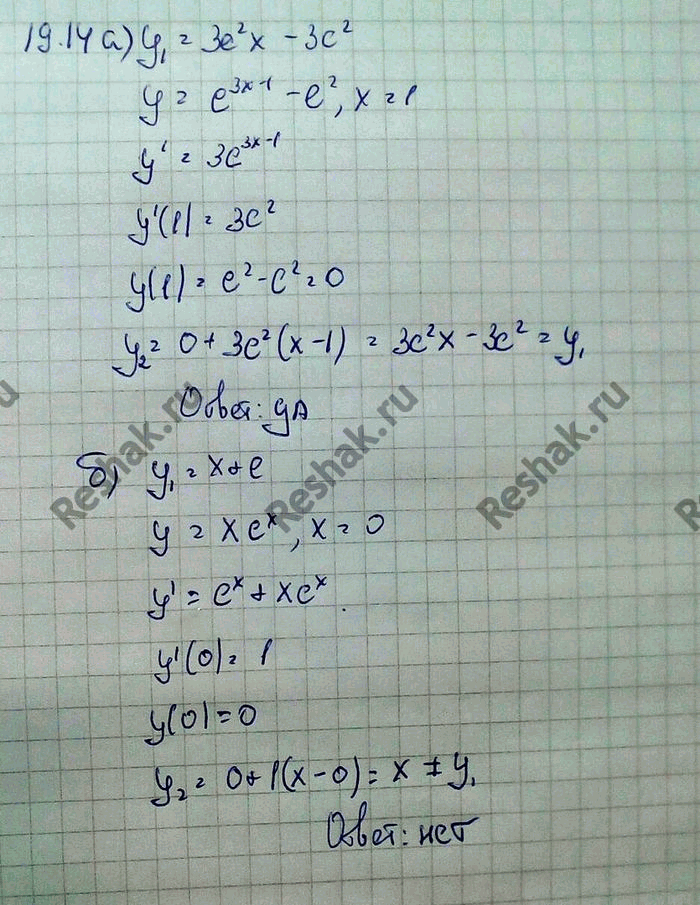 19.14 а) y₁ = 3e²x - 3e²
y = e³ˣ⁻¹ - e², x = 1
y' = 3e³ˣ⁻¹
y'(1) = 3e²
y(1) = e² - e² = 0
y₂ = 0 + 3e²(x-1) = 3e²x - 3e² = y₁
Ответ: да
Reshak.ru Reshak.ru Reshak.ru
б) y₁ = x + e
y = xeˣ, x = 0
y' = eˣ + xeˣ.
y'(0) = 1
y(0) = 0
y₂ = 0 + 1(x-0) = x ≠ y₁
Ответ: нет